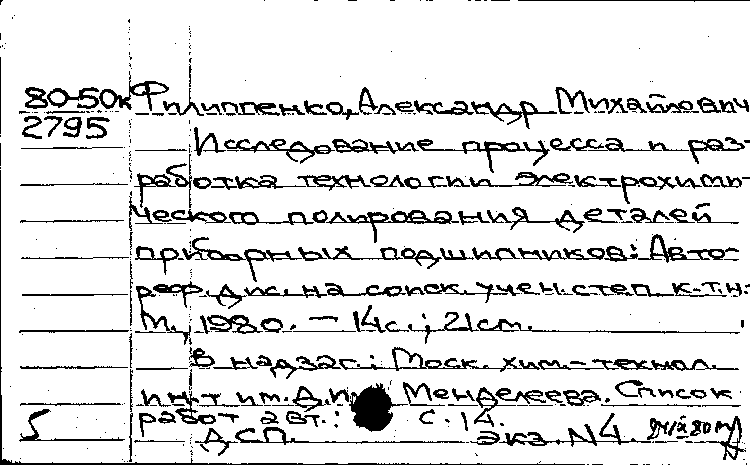 80-50к Филиппенко, Александр Михайлович
2795
Исследование процесса и раз-
работка технологии электрохими-
ческого полирования деталей
приборных подшипников: Авто-
реф. дис. на соиск. учен. степ. к.т.н.-
М., 1980. - 14с.; 21см.
В надзаг.: Моск. хим.-технол.
ин-т им. Д.И. Менделеева. Список
работ авт.: с. 14.
5 ДСП. экз. N4.